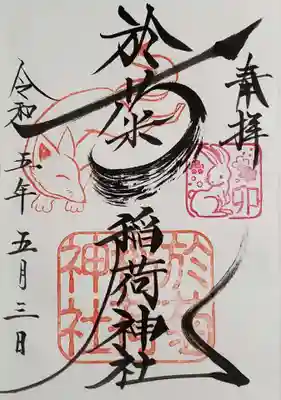 奉拝
卯
於菊稲荷神社
於菊稲荷神社
令和五年五月三日